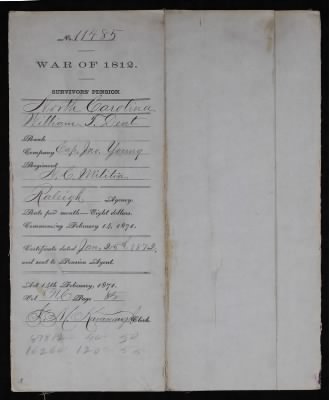 No. 11485
WAR OF 1812.
SURVIVORS' PENSION.
North Carolina
William T. Dent
Rank
Company Cap. Jno. Young
Regiment
N. C. Militia
Raleigh Agency.
Rate per month—Eight dollars.
Commencing February 14, 1871.
Certificate dated Jan. 25th 1872,
and sent to Pension Agent.
Act 14th February, 1871.
Vol. Page
Clerk.